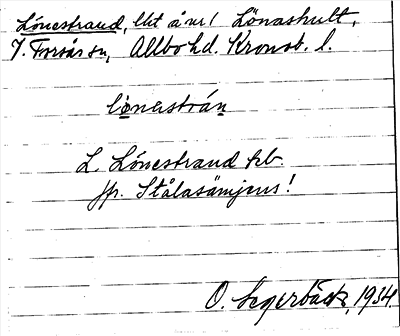 Lönestrand, lht å nr 1 Lönashult,
V. Torsås sn, Allbo hd. Kronob. l.
lọ̈nastrán
L. Lönestrand kb.
jfr. Stålasämjens!
O. Segerbäck, 1934.